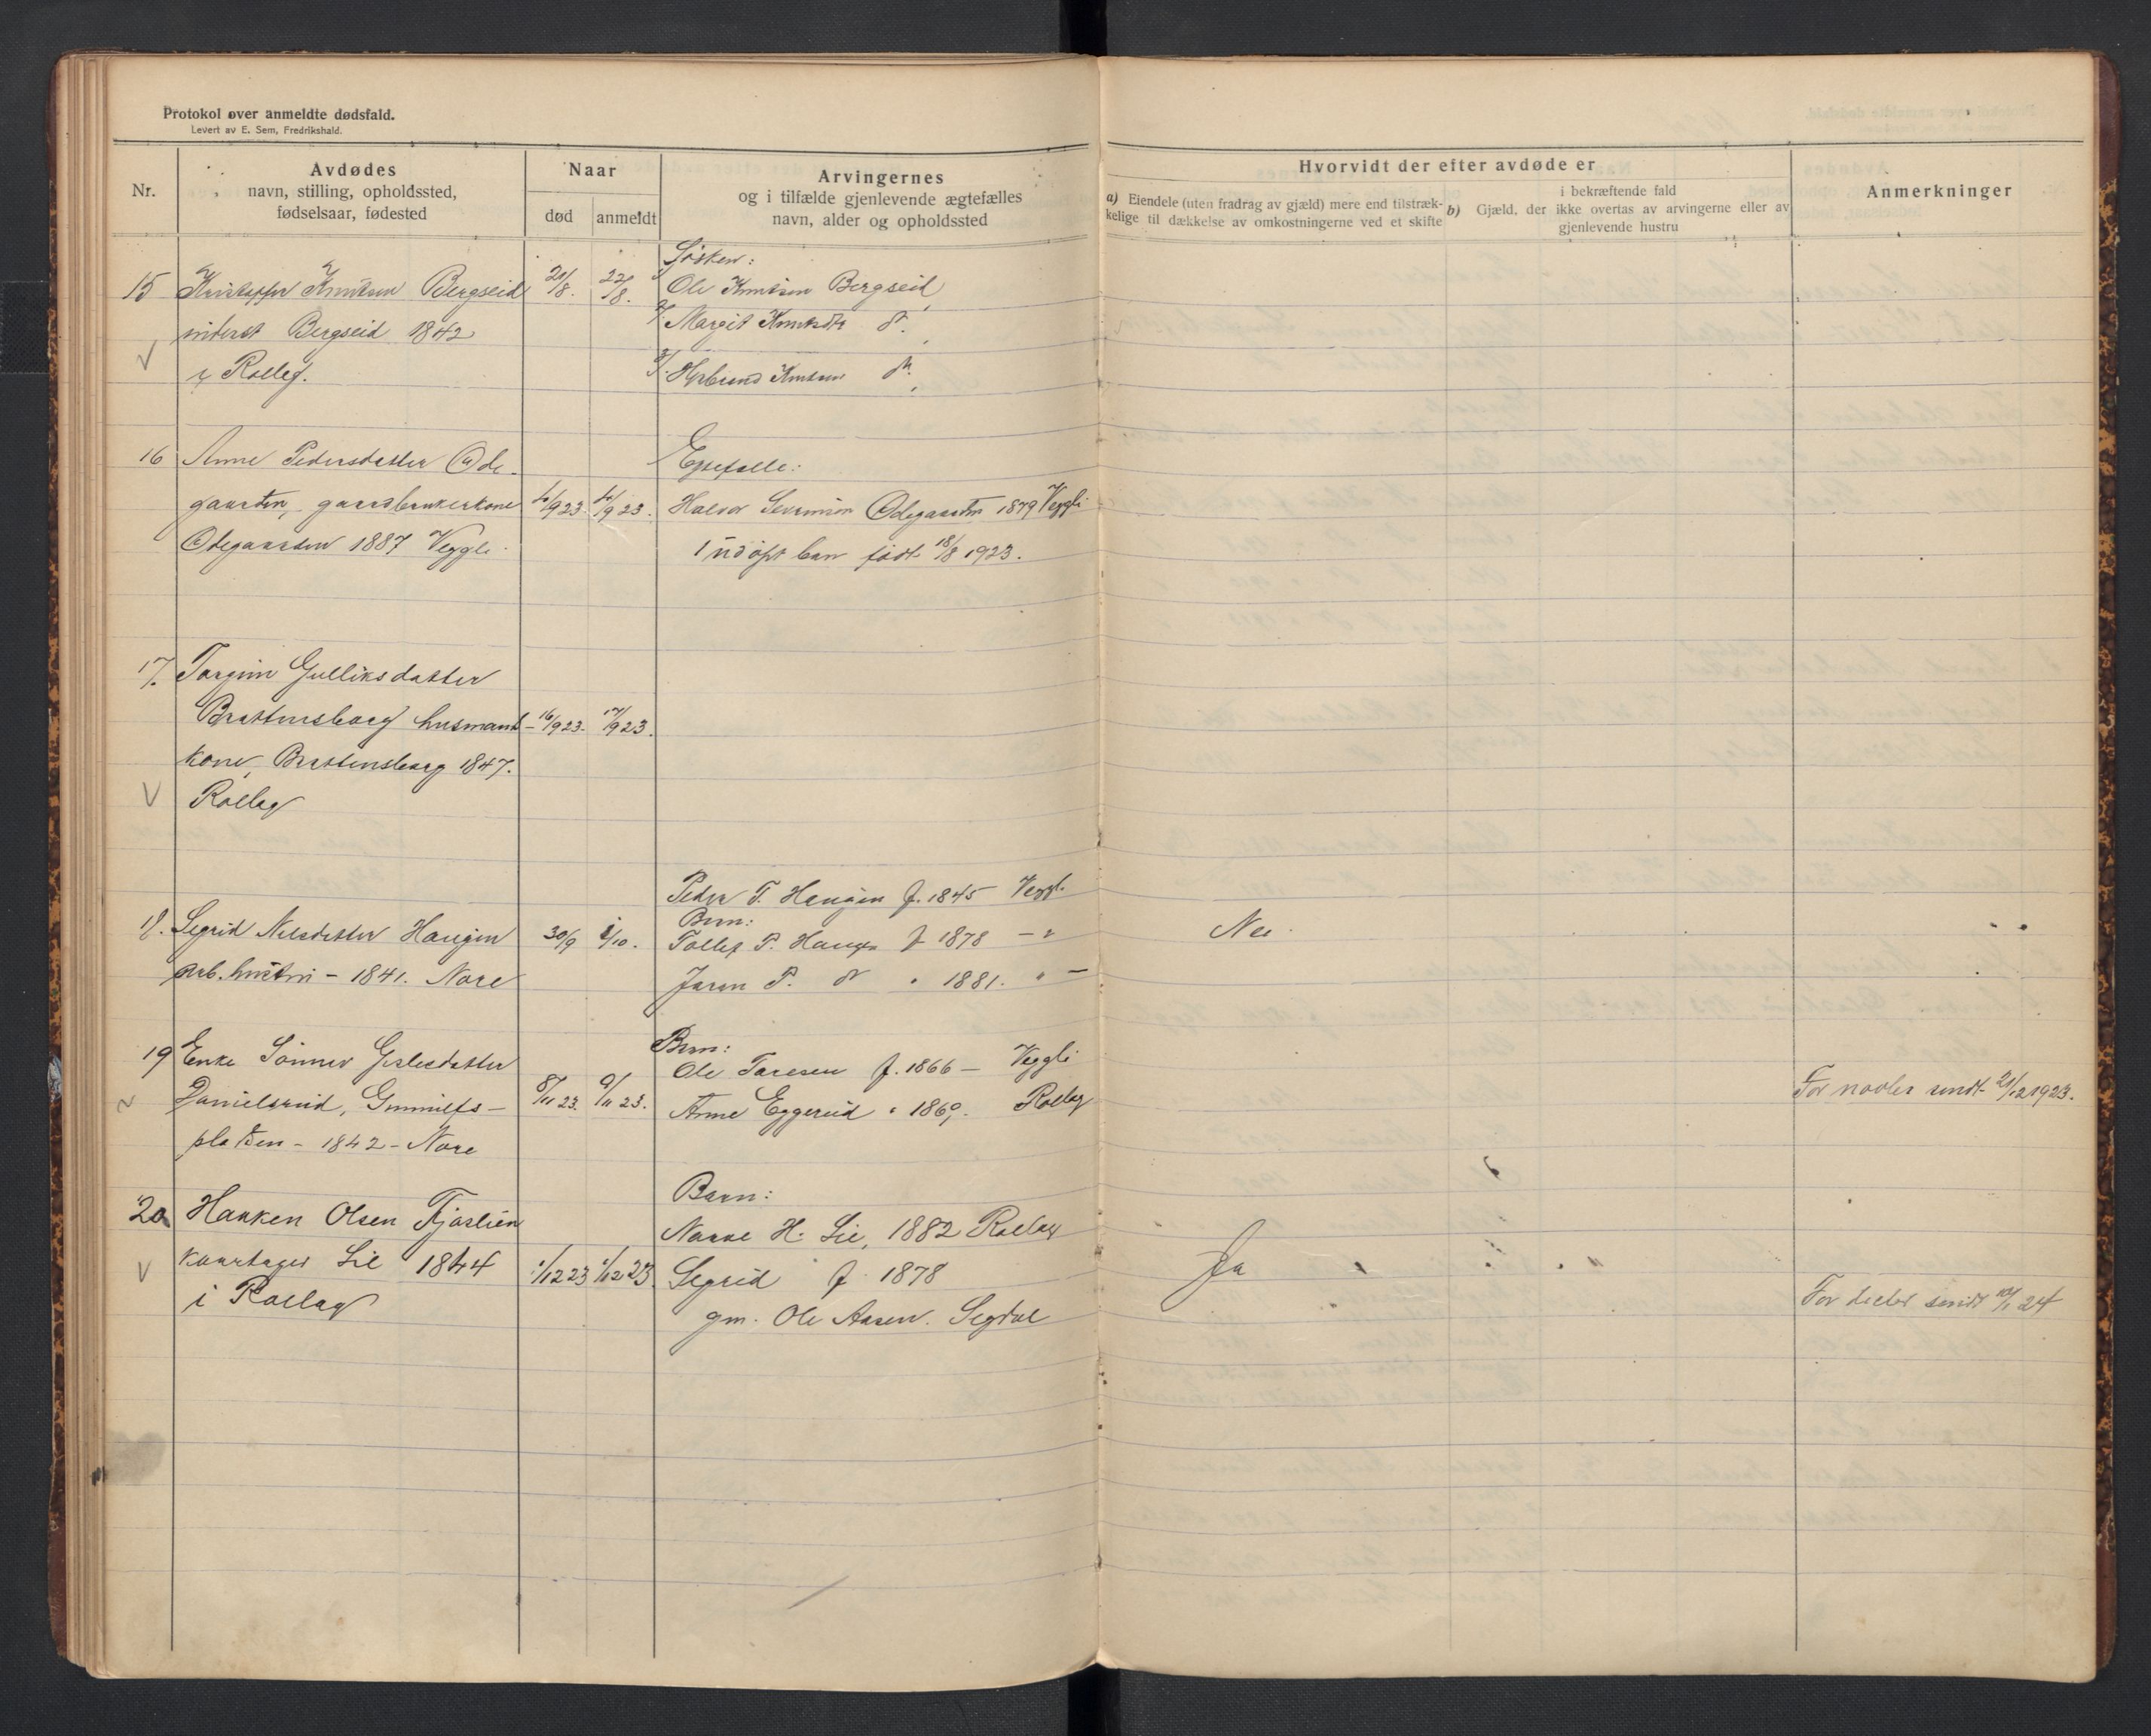 Protokol over anmeldte dødsfald.
Levert av E. Sem, Fredrikshald.
Nr.
Avdødes
navn, stilling, opholdssted,
fødselsaar, fødested
Naar
død
anmeldt
Arvingernes
og i tilfælde gjenlevende ægtefælles
navn, alder og opholdssted
Hvorvidt der efter avdøde er
a) Eiendele (uten fradrag av gjæld) mere end tilstræk-
kelige til dækkelse av omkostningerne ved et skifte
b) Gjæld, der
i bekræftende fald
ikke overtas av arvingerne eller av
gjenlevende hustru
Anmerkninger
Søsken:
15 Kristoffer Knutsen Bergseid 21/8. 22/8. Ole Knutsen Bergseid
inderst Bergseid 1842 2/. Margit Knutsdtr
i Rollag. 3/. Knutsen
16 Anne Pedersdatter Øde- Egtefælle:
gaarden, gaardbrukerkone 4/9 23. 4/9 23. Halvor Severinsen Ødegaarden 1879 Veggli
Ødegaarden 1887 Veggli. 1 udøpt barn født 18/8 1923.
17. Torgun Gulliksdatter
Brattensborg husmands- 16/9 23. 17/9 23.
kone, Brattensborg 1847.
Rollag
Peder T. Haugen f. 1845 Veggli
Barn:
18. Sigrid Nilsdatter Haugen 30/9 1/10. Tollef P. Haugen f 1878 — " Nei.
arb. hustru - 1841. Nore P. " 1881. " —
Barn:
19 Enke Sønnev Gislesdatter Ole Toresen f. 1866 — Veggli
Danielsrud, Gunnulfs- 8/11 23. 9/11 23. Anne Eggerud " 1869. Rollag
For sendt 21/12 1923.
pladsen - 1842 - Nore
Barn:
20 Haaken Olsen Fjøslien Narve H. Lie, 1882 Rollag
kaartager Lie 1844 1/12 23 1/12 23. Sigrid f. 1878 Ja
i Rollag gm. Ole Aasen. Sigdal
For sendt 10/1 24